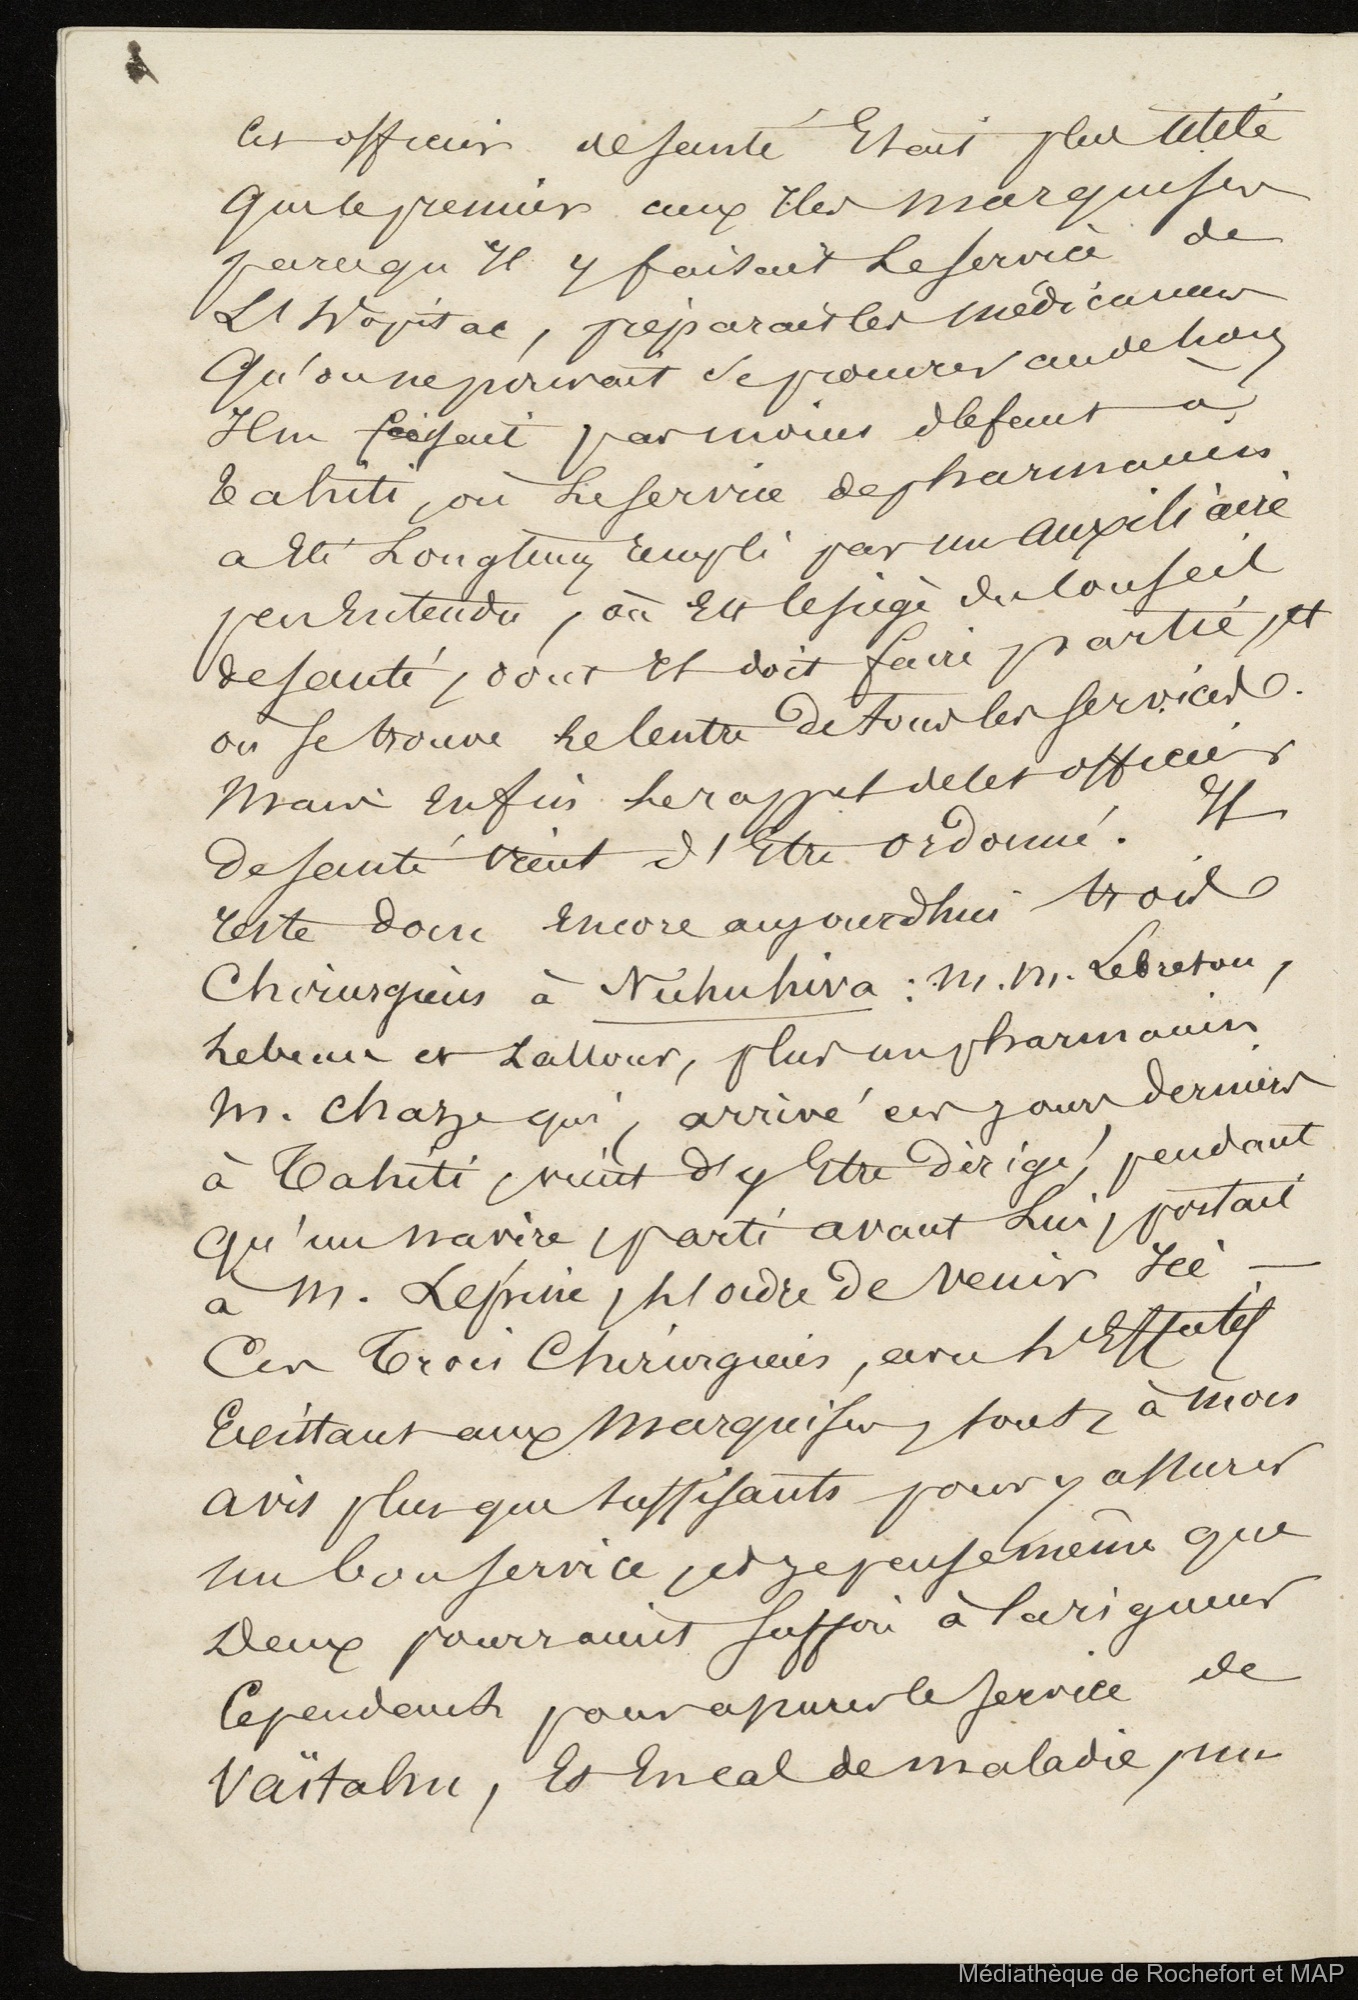 Cet officier de santé Etait plus utile
que le premier aux Iles Marquises
parcequ'Il y faisait le service de
l'hôpital, préparait les médicamens
qu'on ne pouvait se procurer au dehors
Il ne faisait pas moins défaut à
Tahiti, où le service de pharmacien
a Eté longtems rempli par un auxiliaire
peu Entendu, où Est le siège du Conseil
de santé, dont Il doit faire partie, et
où se trouve le Centre de tous les services.
Mais Enfin le rappel de cet officier
de santé vient d'Etre ordonné. Il
reste donc Encore aujourdhui trois
Chirurgiens à Nuhuhiva : M.M. Lebreton,
Lebeau et Lallour, plus un pharmacien
M. Chaze qui, arrivé ces jours derniers
à Tahiti, vient d'y Etre dirigé, pendant
qu'un navire, parti avant lui, portait
à M. Lépine, l'ordre de venir Ici —
Ces Trois Chirurgiens, avec l'Effectif
Existant aux Marquises, sont, à mon
avis plus que suffisants pour y assurer
un bon service, et je pense même que
Deux pourraient suffire à la rigueur
Cependant pour assurer le service de
Vaïtahu, Et En cas de maladie, un
Médiathèque de Rochefort et MAP